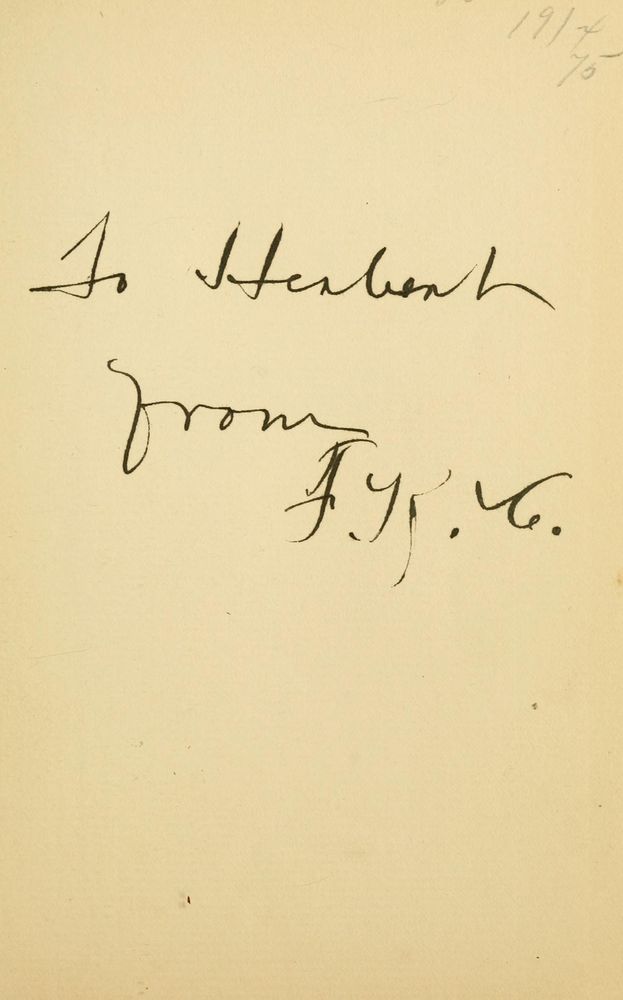 1914
75
To Herbert
from
F.K.C.